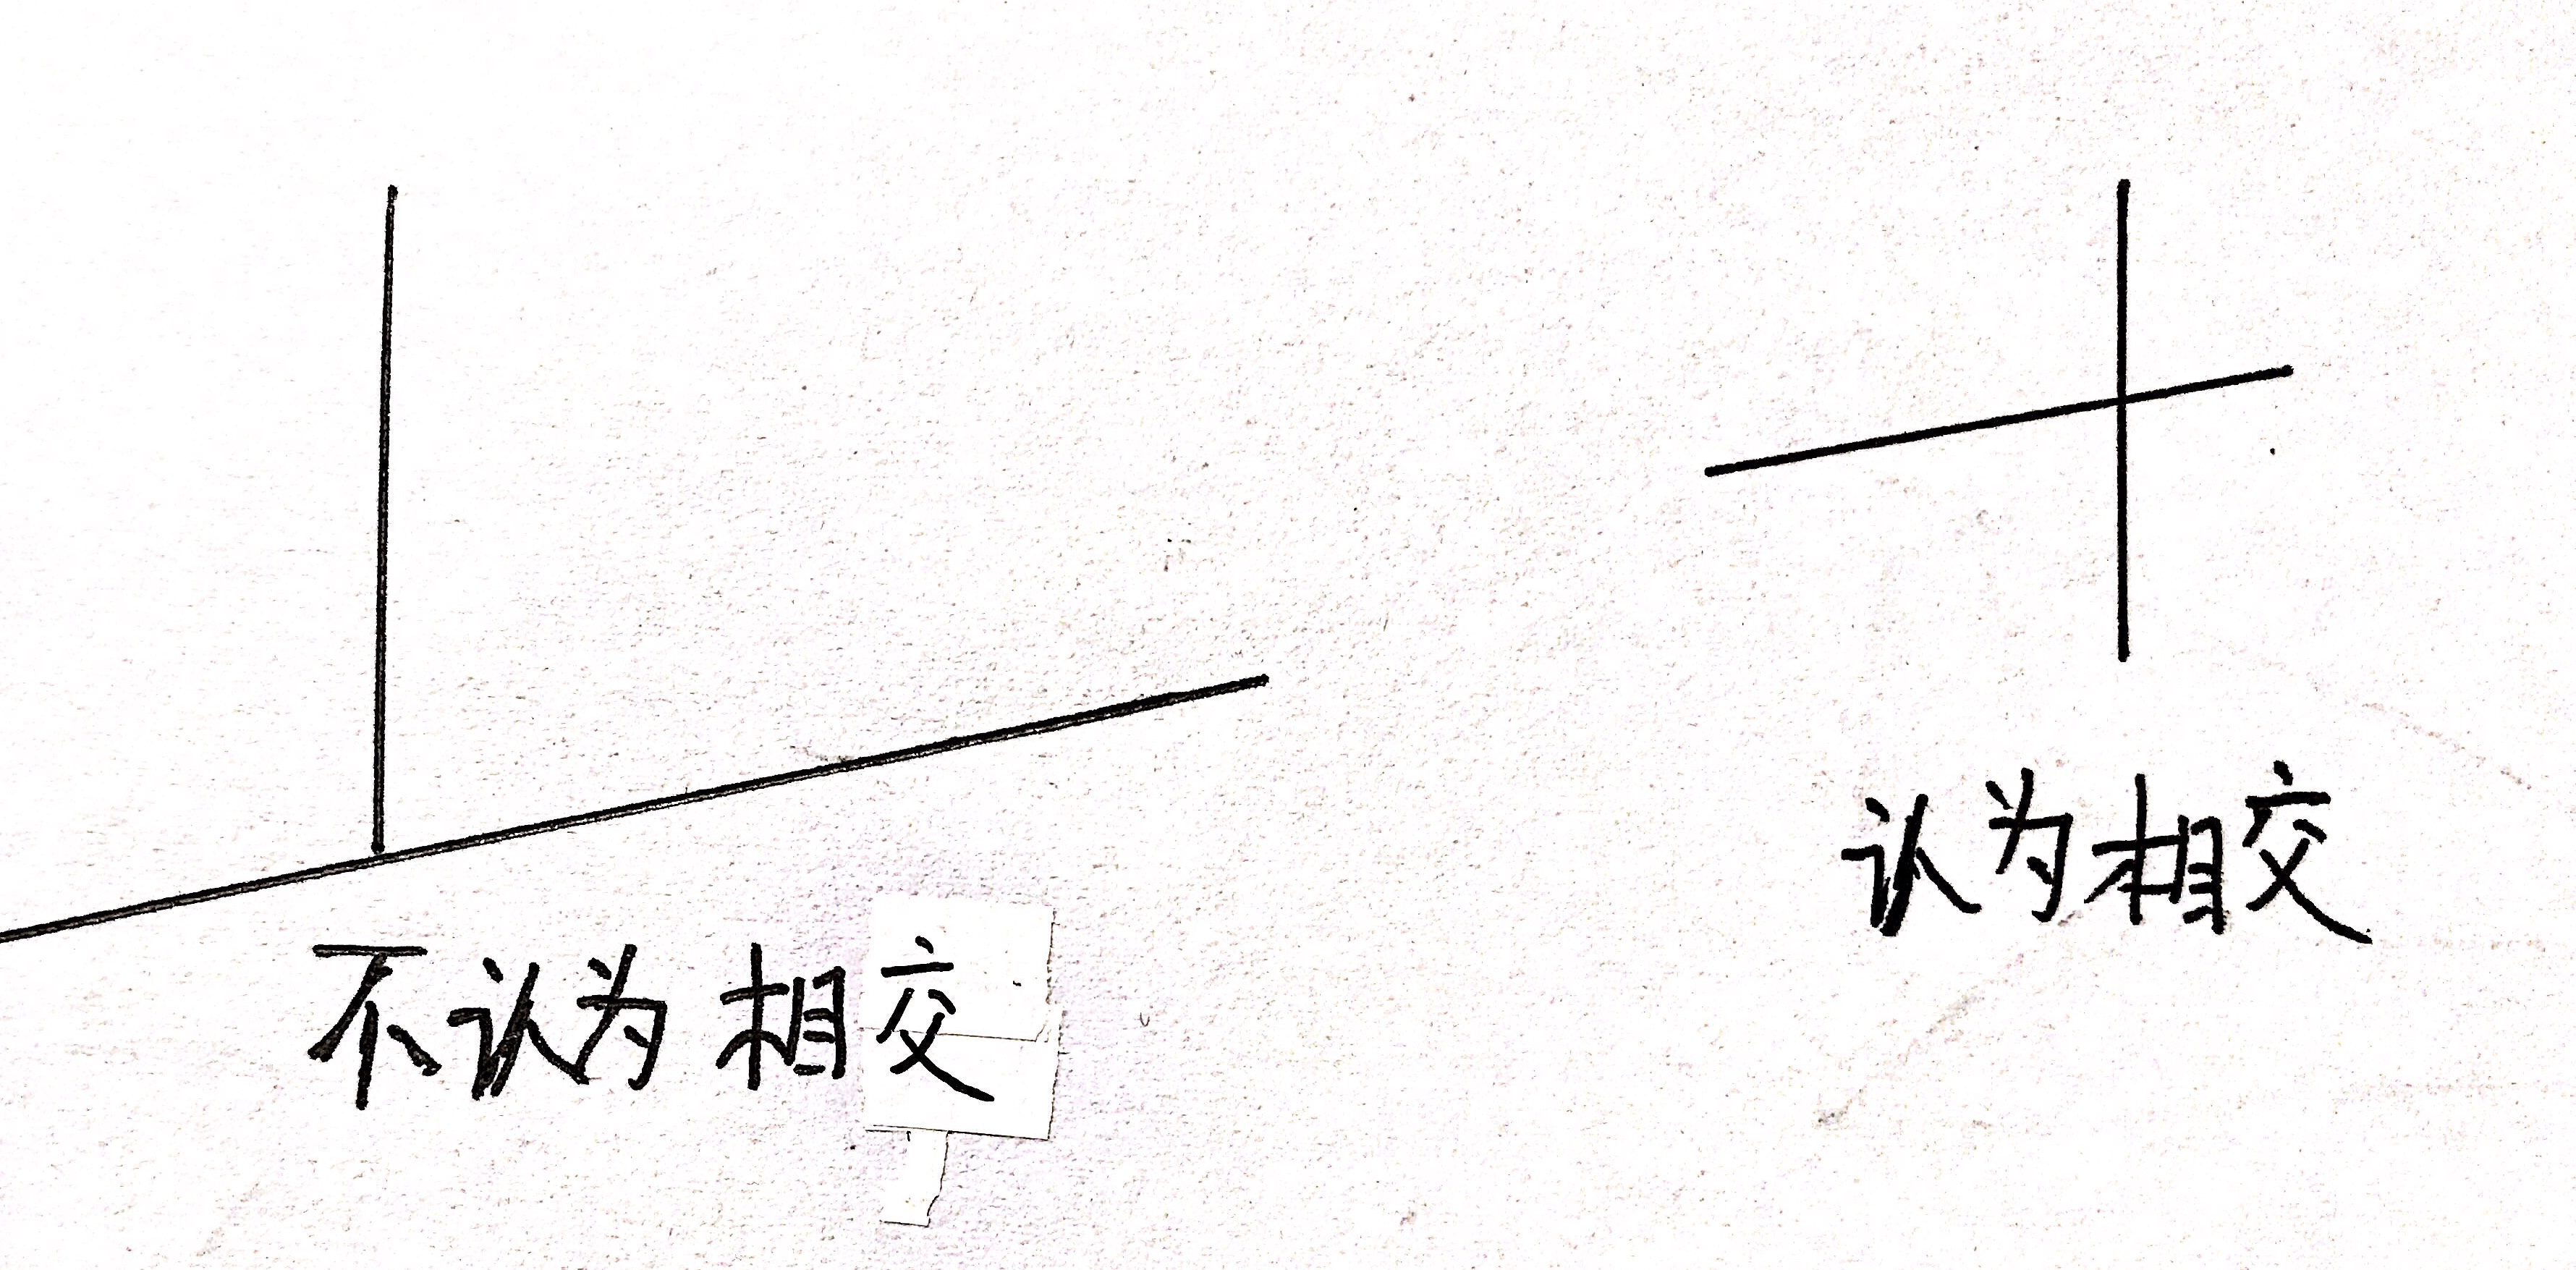 不认为相交
认为相交